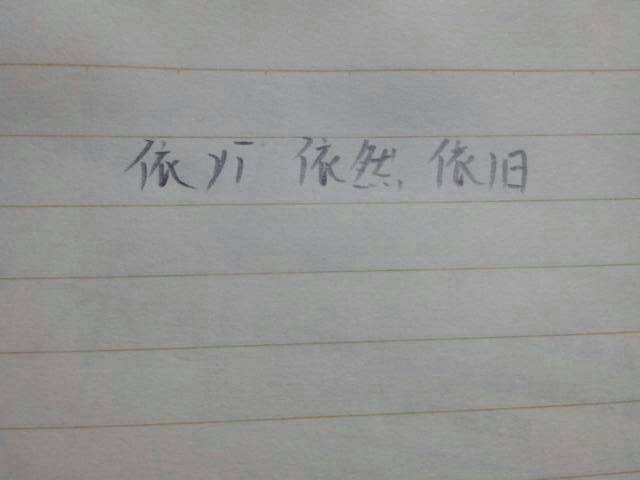 依 依然 依旧